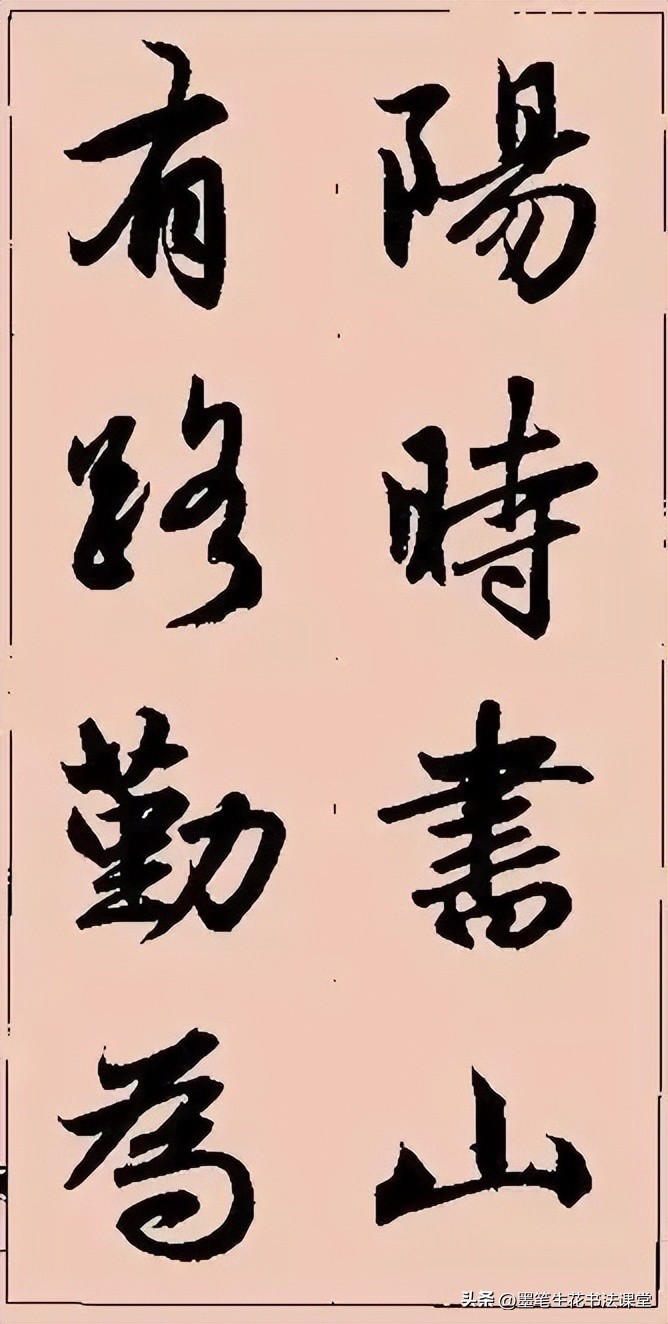 陽時書山
有路勤為
头条 @墨笔生花书法课堂